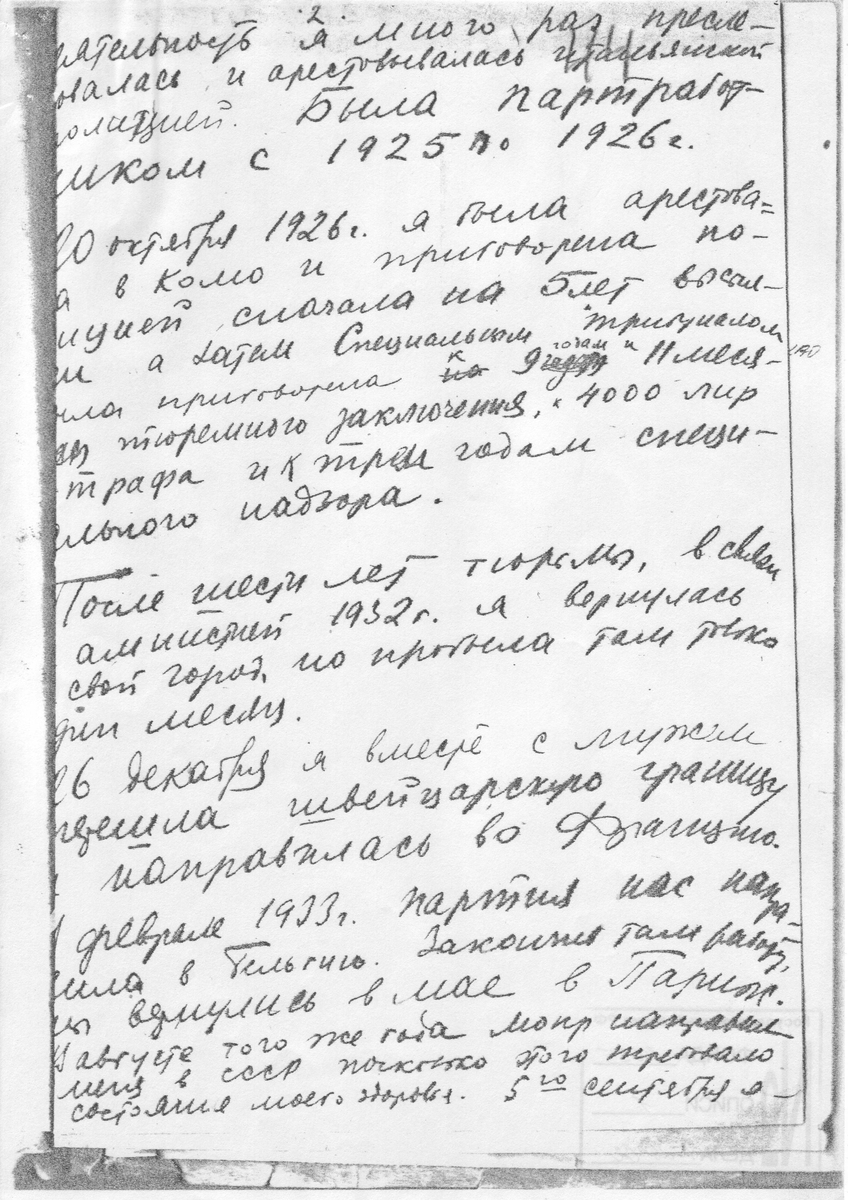 2
еятельность я много раз пресле-
овалась и арестовывалась итальянской
олицией. Была партработ-
ником с 1925 по 1926 г.
20 октября 1926 г. я была арестова=
а в Комо и приговорена по-
ицией сначала на 5 лет высыл-
и а затем Специальным трибуналом
ыла приговорена к 9 годам и 11 меся-
ам тюремного заключения, к 4000 лир
трафа и к трем годам специ-
ального надзора.
После шести лет тюрьмы, в связи
амнистией 1932 г. я вернулась
свой город, но пробыла там только
дин месяц.
26 декабря я вместе с мужем
ерешла швейцарскую границу
и направилась во Францию.
В феврале 1933 г. партия нас напра-
вила в Бельгию. Закончив там работу,
мы вернулись в мае в Париж.
В августе того же года Мопр направил
меня в СССР поскольку этого требовало
состояние моего здоровья. 5го сентября я-